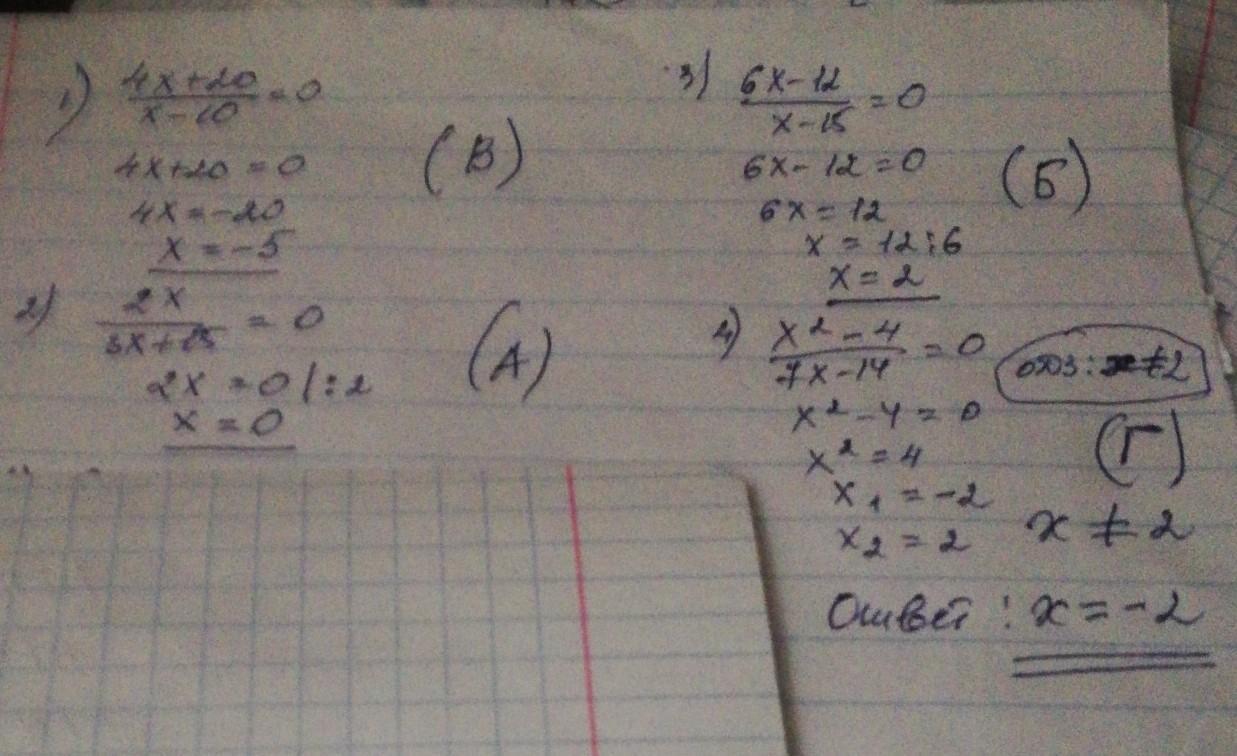 1) (4x+20)/(x-10) = 0
4x+20 = 0
(В)
4x = -20
x = -5
2) 2x/(3x+15) = 0
(А)
2x = 0 |:2
x = 0
3) (6x-12)/(x-15) = 0
6x-12 = 0
(Б)
6x = 12
x = 12:6
x = 2
4) (x²-4)/(7x-14) = 0
ОДЗ: x≠2
x²-4 = 0
(Г)
x² = 4
x₁ = -2
x₂ = 2
x ≠ 2
Ответ: x = -2